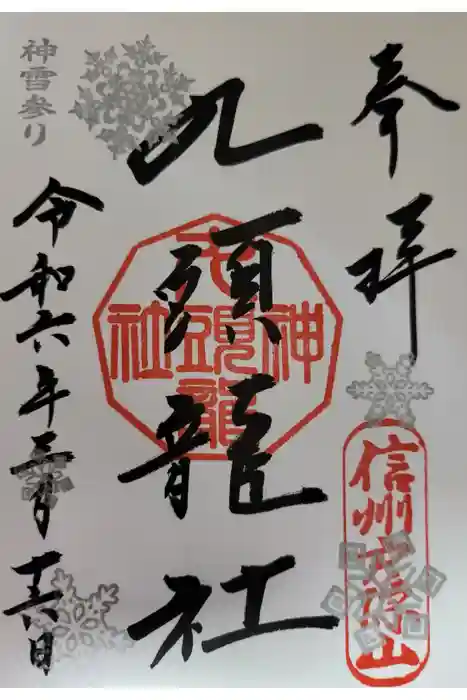 奉拝
信州戸隠山
九頭龍社
九頭龍
神
社
神雪参り
令和六年三月十六日